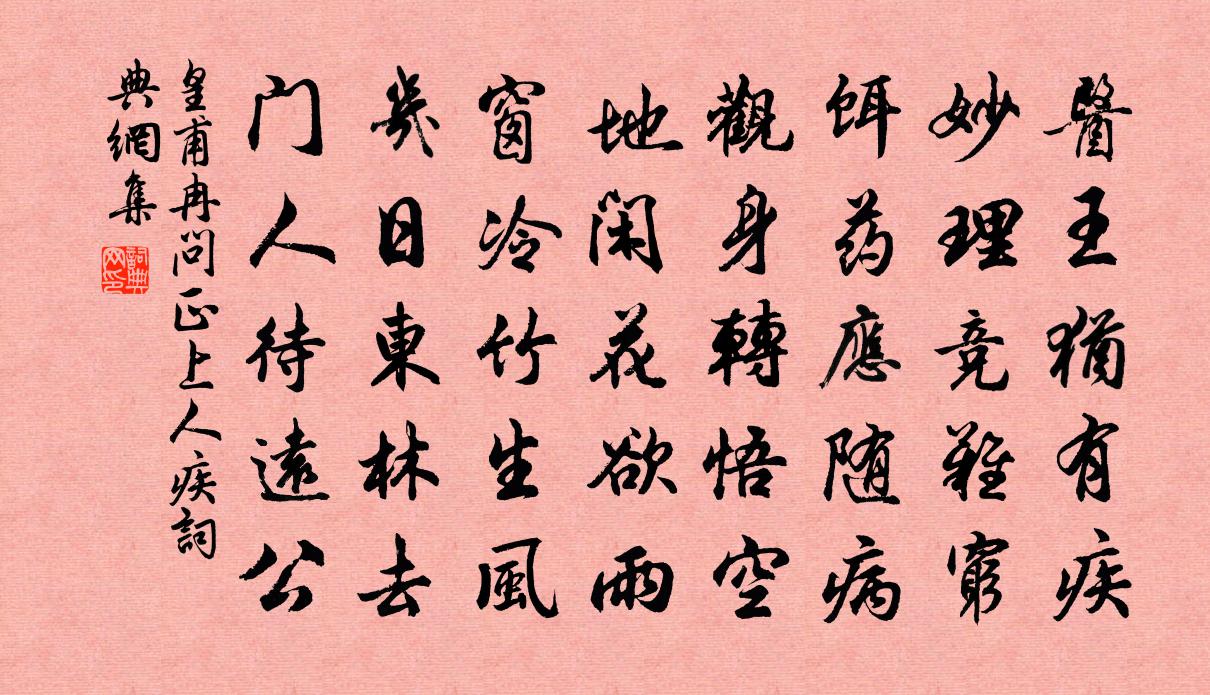 醫王猶有疾
妙理竞難窮
饵药應随病
觀身轉悟空
地闲花欲雨
窗冷竹生風
幾日東林去
门人待遠公
皇甫冉问正上人疾詞
典網集
詞典
网印